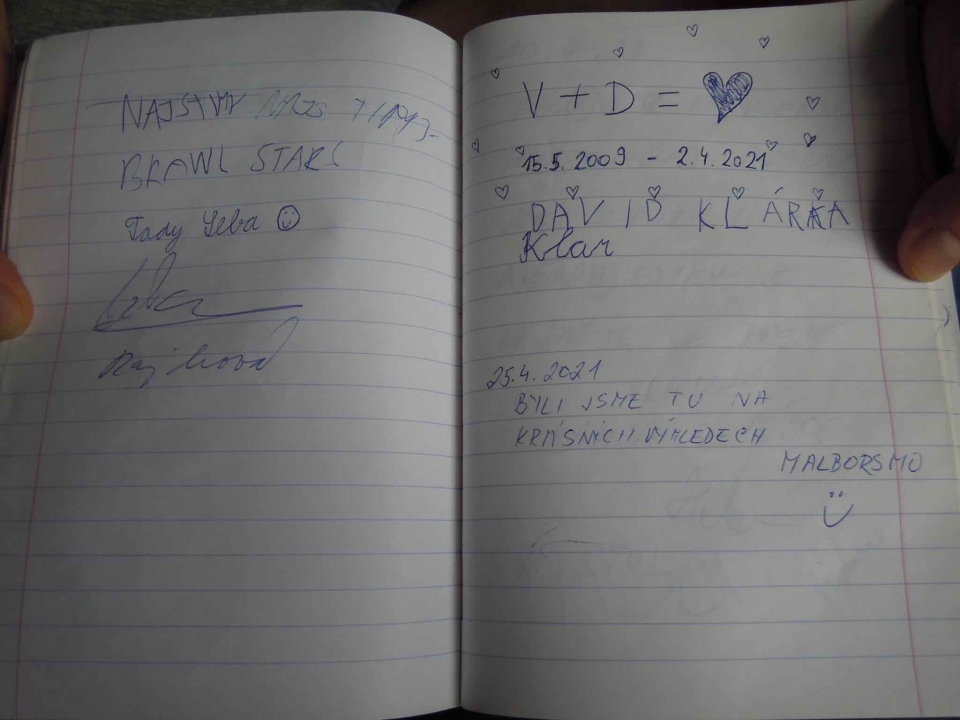 BRAWL STARS
Tady Seba
V + D =
15.5.2009 - 2.4.2021
DAVID KLÁRKA
Klar
25.4.2021
BYLI JSME TU NA
KRÁSNÍCH VÝHLEDECH
MALBORSMO